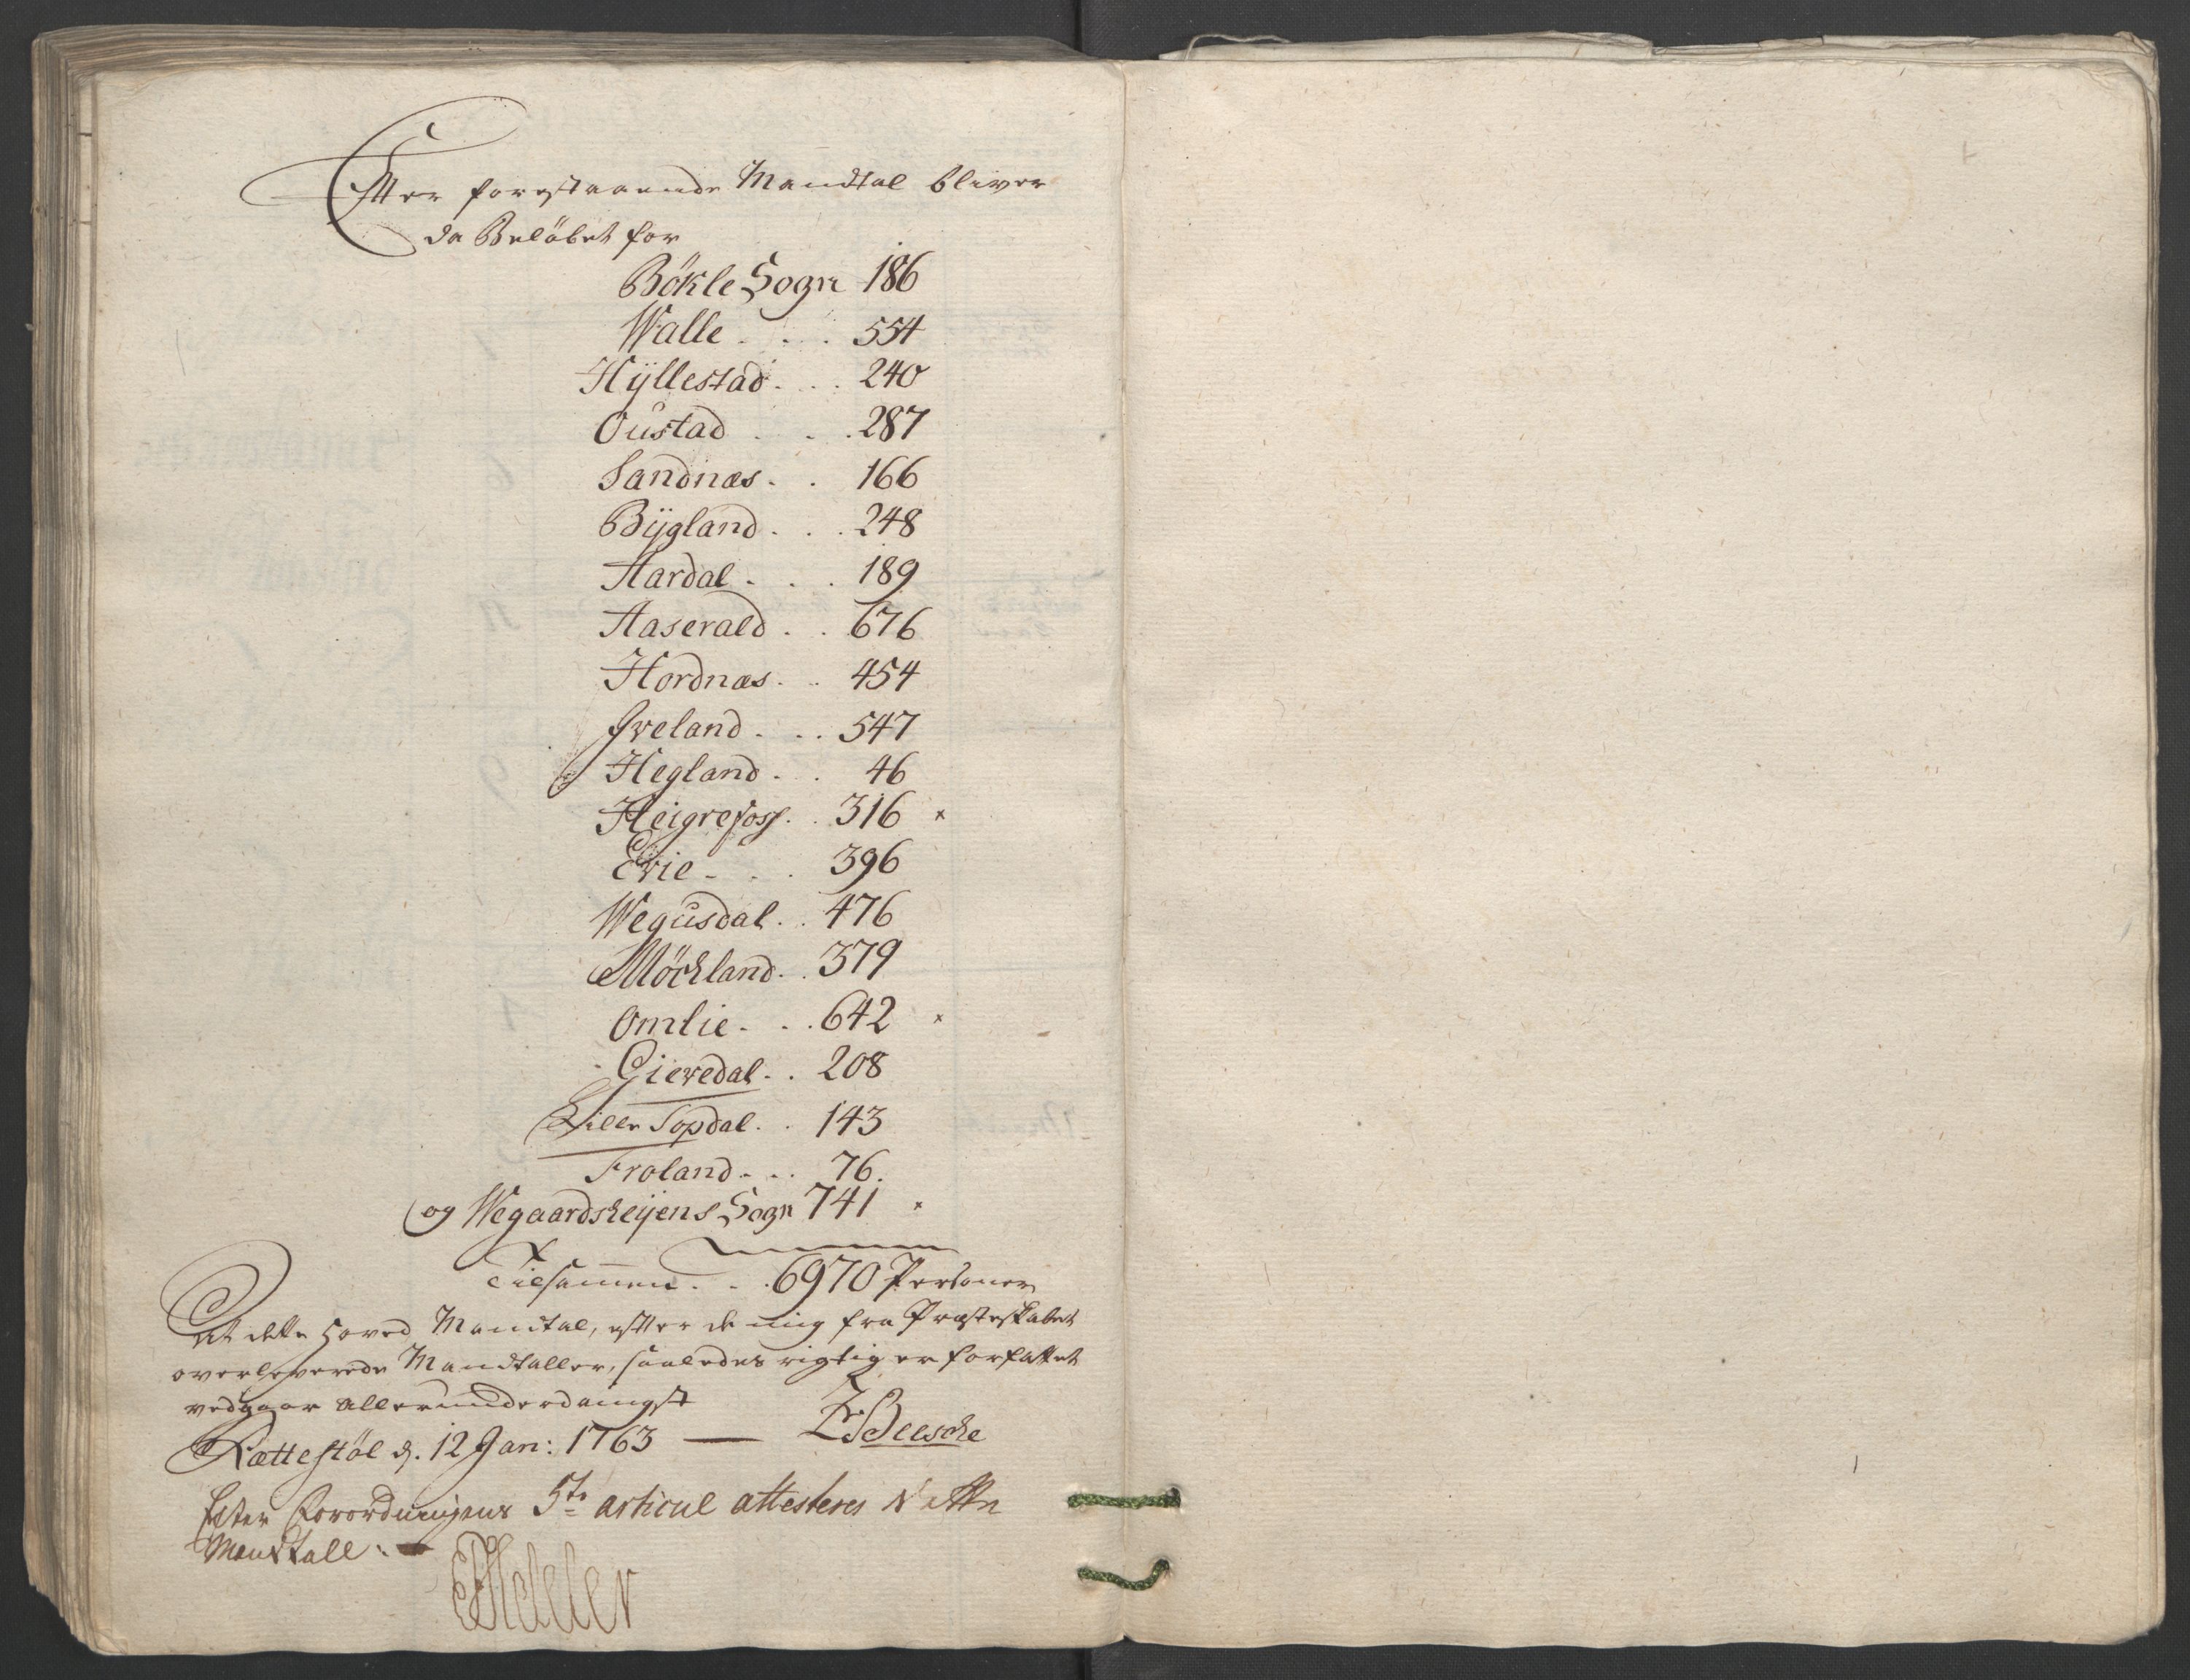 Efter forestaaende Mandtal bliver
da Beløbet for
Bökle Sogn 186
Walle . . . 554
Hÿllestad . . . 240
Oustad . . . 287
Sandnæs . . 166
Bÿgland . . . 248
Aardal . . . 189
Aaserald . . 676
Hordnæs . . 454
Iveland . . . 547
Hegland . . 46
Heigrefoss . . 316 ×
Evie . . . 396
Wegusdal . . 476
Möckland . . 379
Omlie . . . 642 ×
Gievedal . . 208
Lille Topdal . . 143
Froland . . . 76.
og Wegaardsheÿens Sogn 741 ×
Tilsammen . . . 6970 Personer
At dette Hoved Mandtal, efter de mig fra Præsteskabet
overleverede Mandtaller, saaledes rigtig er forfattet
vedgaar allerunderdanigst
Rættestöl d. 12 Jan: 1763 —
Efter Forordningens 5te articul attesteres dette
Mandtall